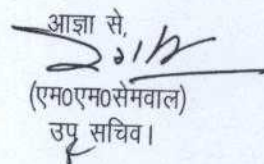 आज्ञा से,
(एम0एम0सेमवाल)
उप सचिव।